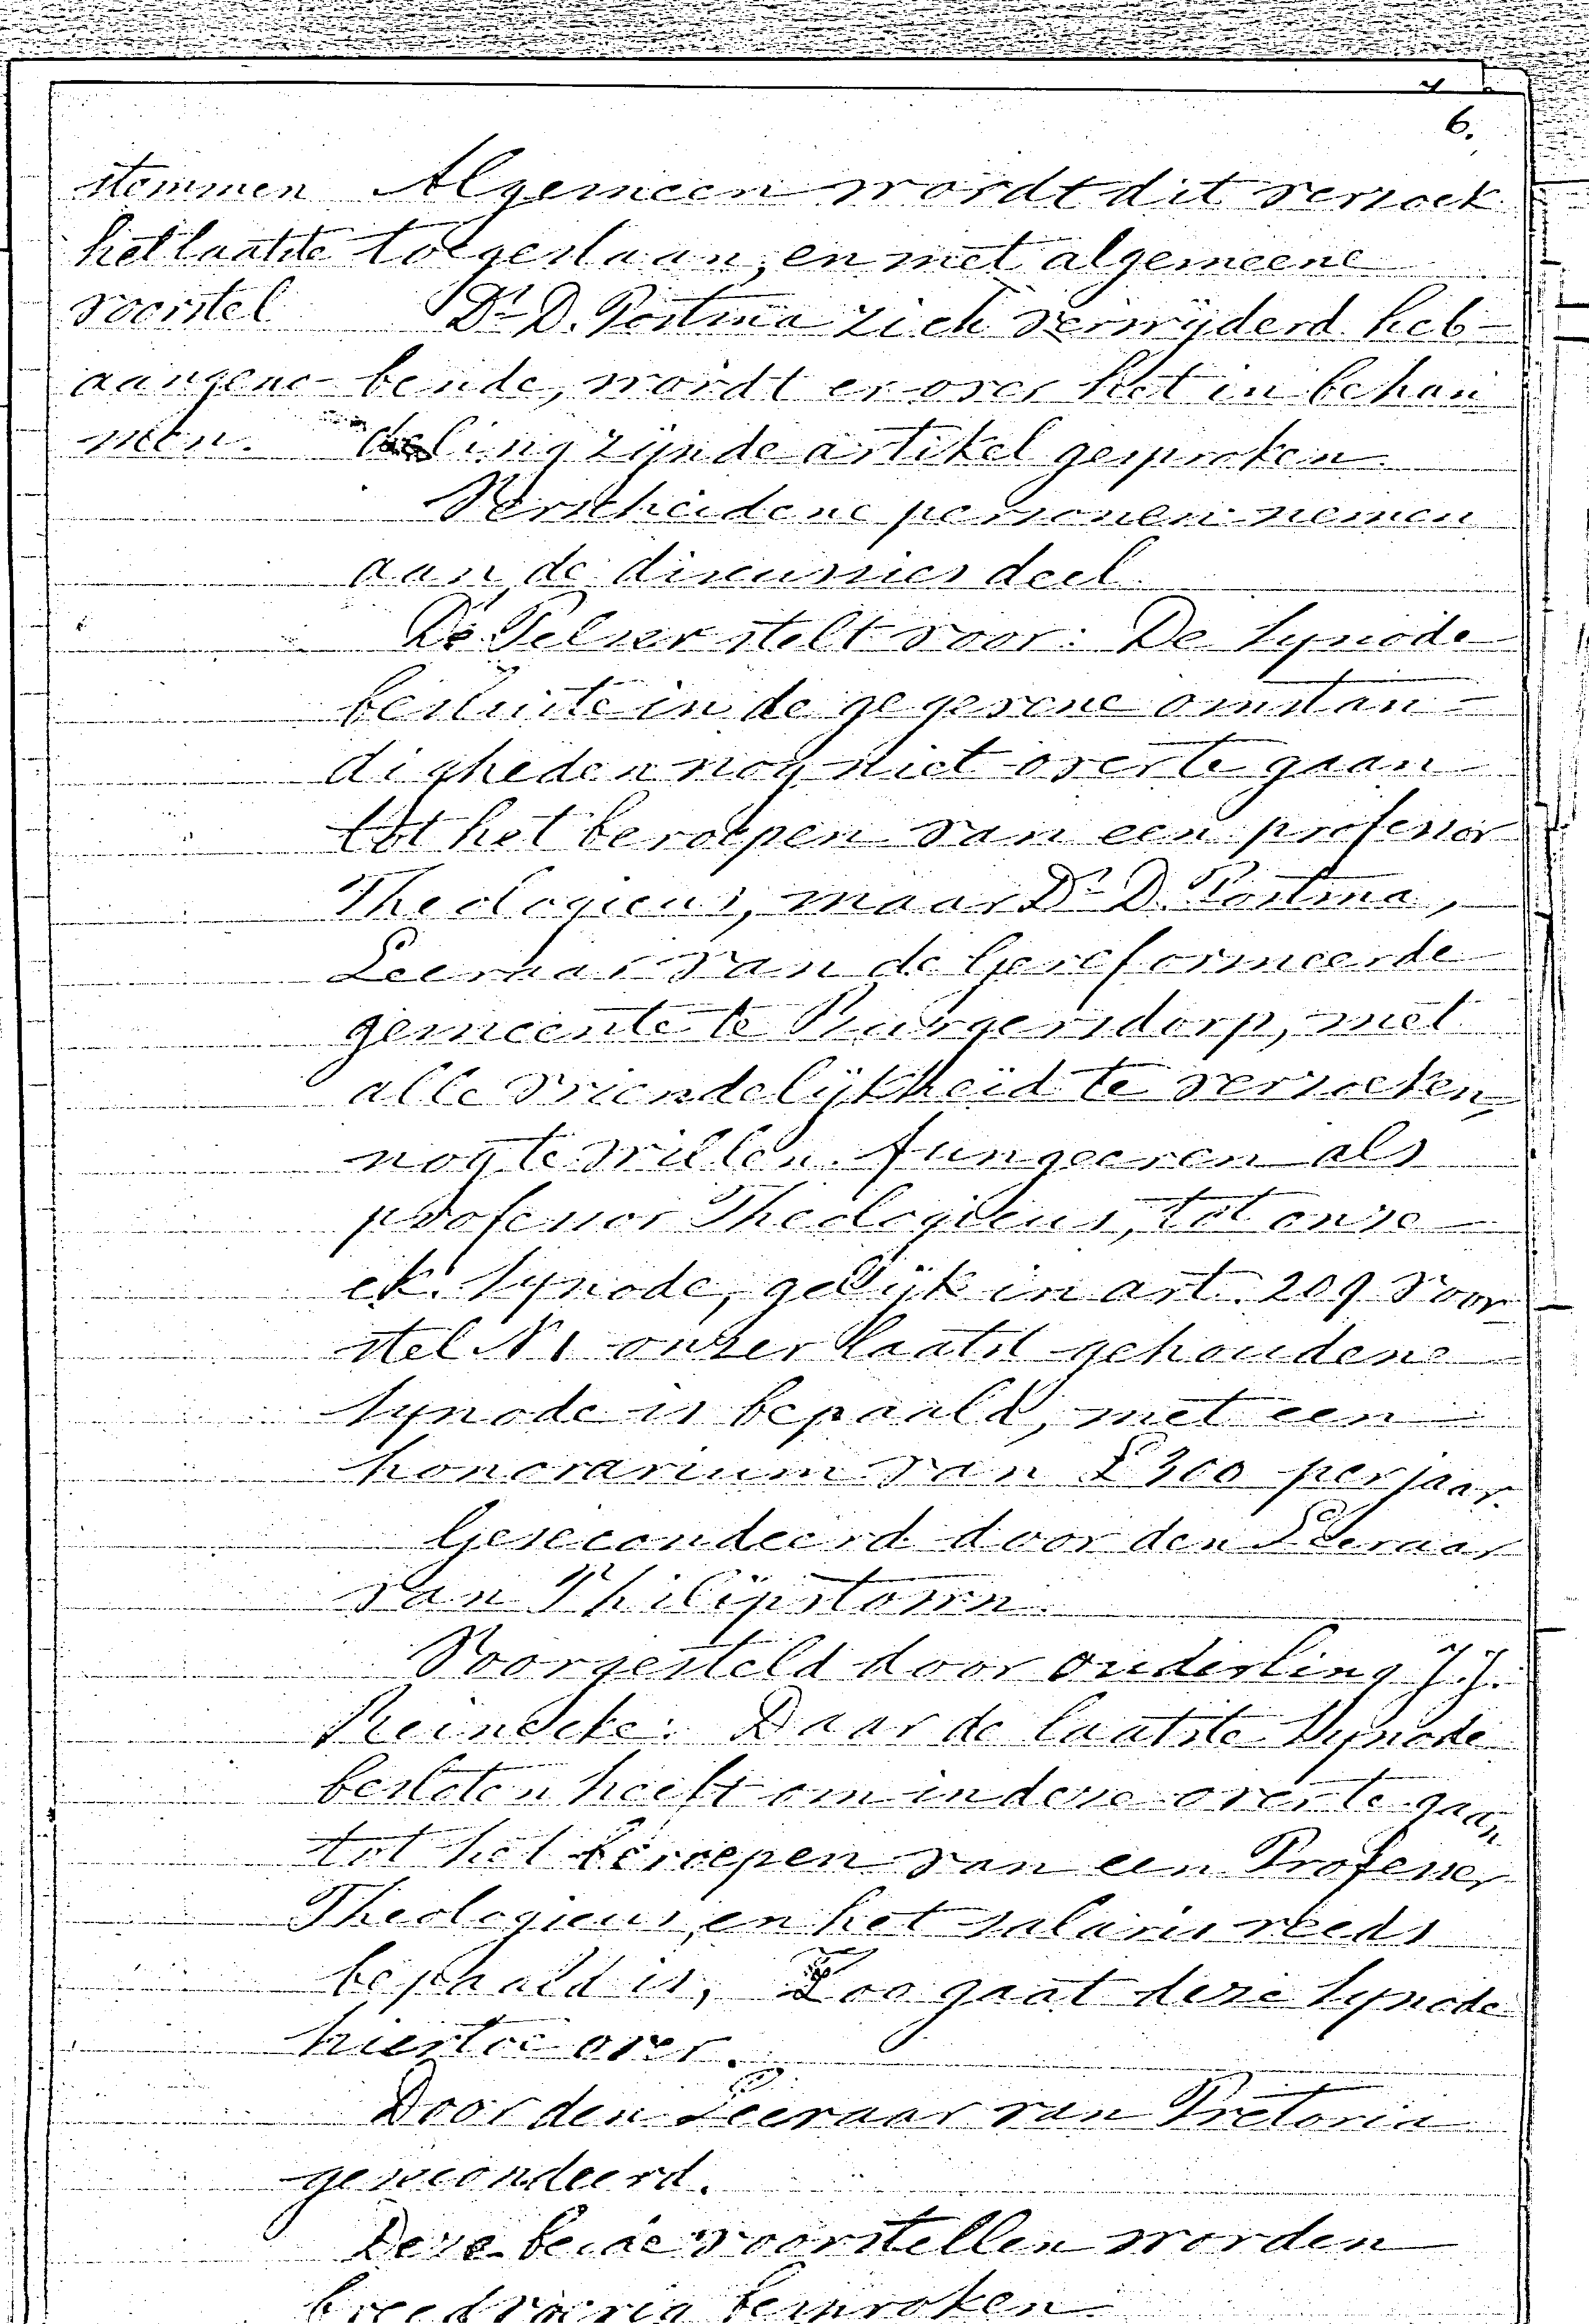 6.
stemmen Algemeen wordt dit verzoek
het laatste toegestaan, en met algemeene
voorstel Ds D. Postma zich verwijderd heb-
aangeno- bende, wordt er over het in behan
men. deling zijnde artikel gesproken.
Verscheidene personen nemen
aan de discussies deel.
Ds Pelser stelt voor: De Synode
besluite in de gegevene omstan-
digheden nog niet over te gaan
tot het beroepen van een professor
Theologicus, maar Ds D. Postma,
Leeraar van de Gereformeerde
gemeente te Burgersdorp, met
alle vriendelijkheid te verzoeken,
nog te willen fungeeren als
professor Theologicus, tot onze
ek. Synode, gelijk in art. 209 voor
stel N1 onzer laatst gehoudene
Synode is bepaald, met een
honorarium van £300 per jaar.
Gesecondeerd door den Leeraar
van Philipstown.
Voorgesteld door ouderling J.J.
Reinecke: Daar de laatste Synode
besloten heeft om in deze over te gaan
tot het beroepen van een Professor
Theologicus, en het salaris reeds
bepaald is, Zoo gaat deze Synode
hiertoe over.
Door den Leeraar van Pretoria
gesecondeerd.
Deze beide voorstellen worden
breedvoerig besproken.